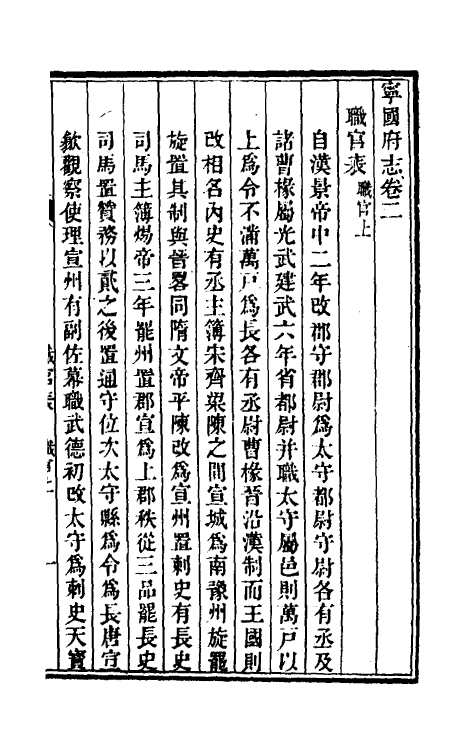 寧國府志卷二
職官表 職官上
自漢景帝中二年改郡守郡尉為太守都尉守尉各有丞及
諸曹掾屬光武建武六年省都尉并職太守屬邑則萬戶以
上為令不滿萬戶為長各有丞尉曹掾晉沿漢制而王國則
改相名內史有丞主簿宋齊梁陳之間宣城為南豫州旋罷
旋置其制與晉畧同隋文帝平陳改為宣州置刺史有長史
司馬主簿煬帝三年罷州置郡宣為上郡秩從三品罷長史
司馬置贊務以貳之後置通守位次太守縣為令為長唐宣
歙觀察使理宣州有副佐幕職武德初改太守為刺史天寶